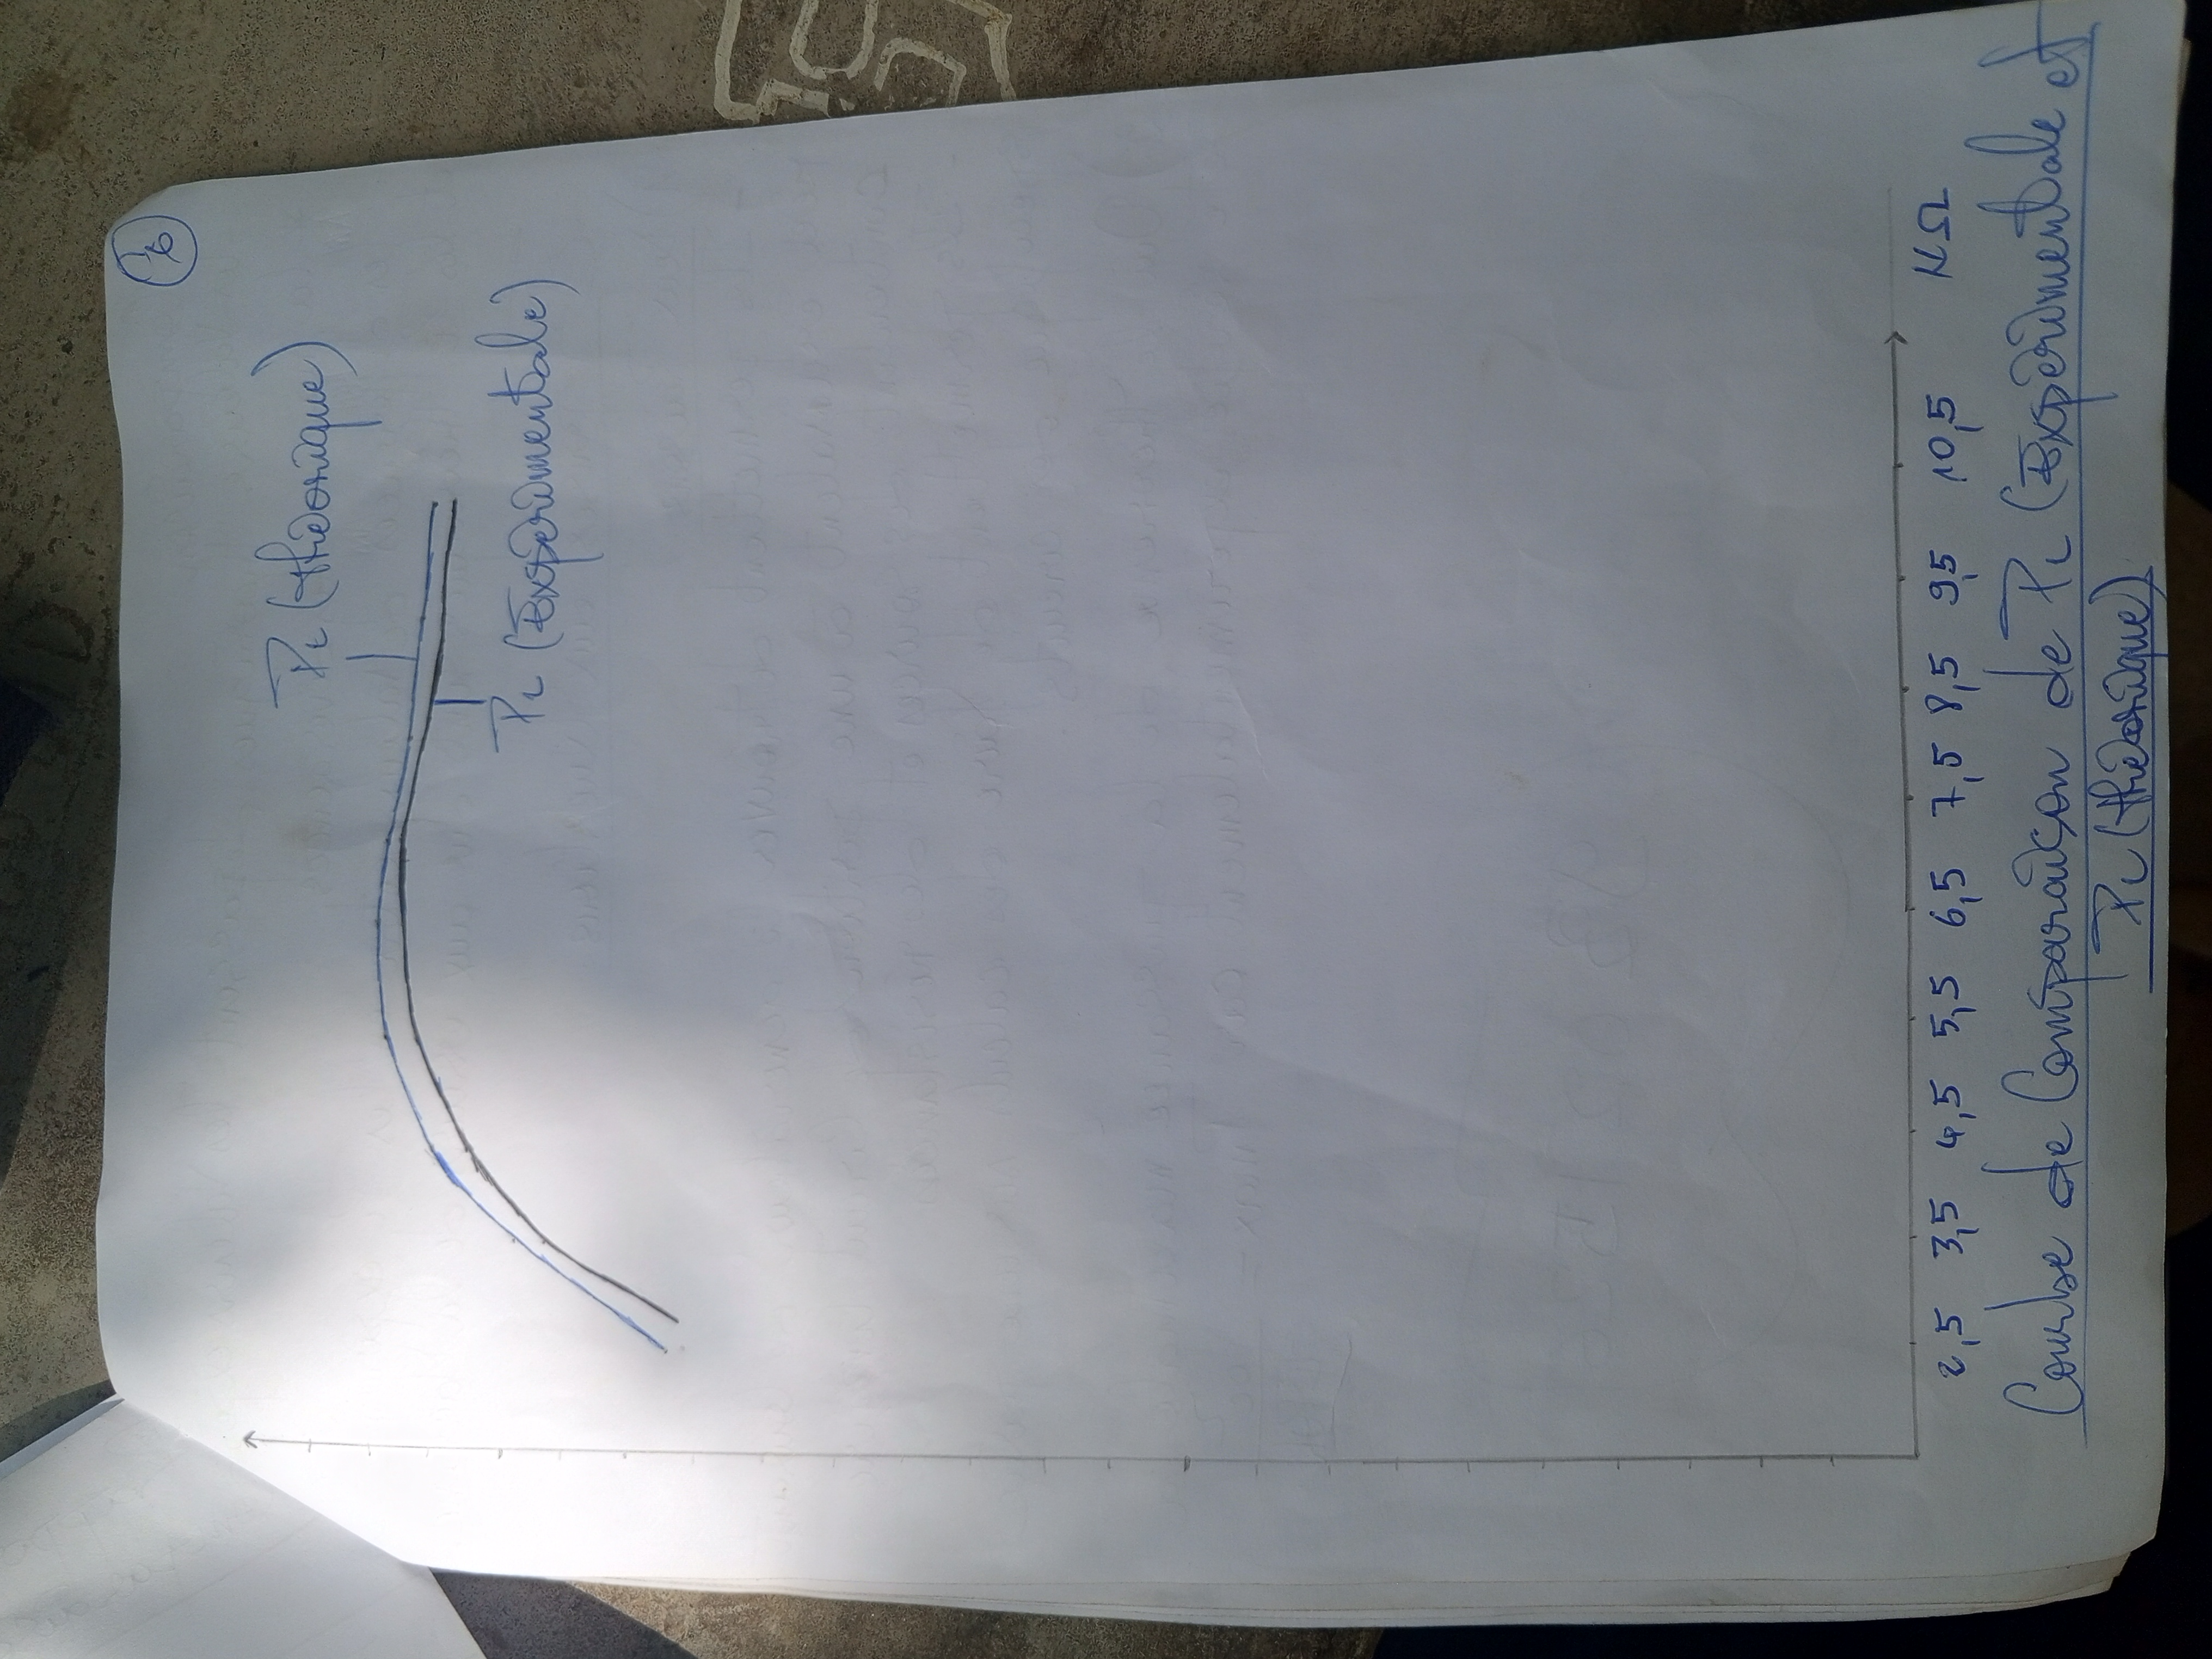 6
PL (théorique)
PL (Expérimentale)
2,5 3,5 4,5 5,5 6,5 7,5 8,5 9,5 10,5 KΩ
Courbe de Comparaison de PL (Expérimentale et
PL (théorique)